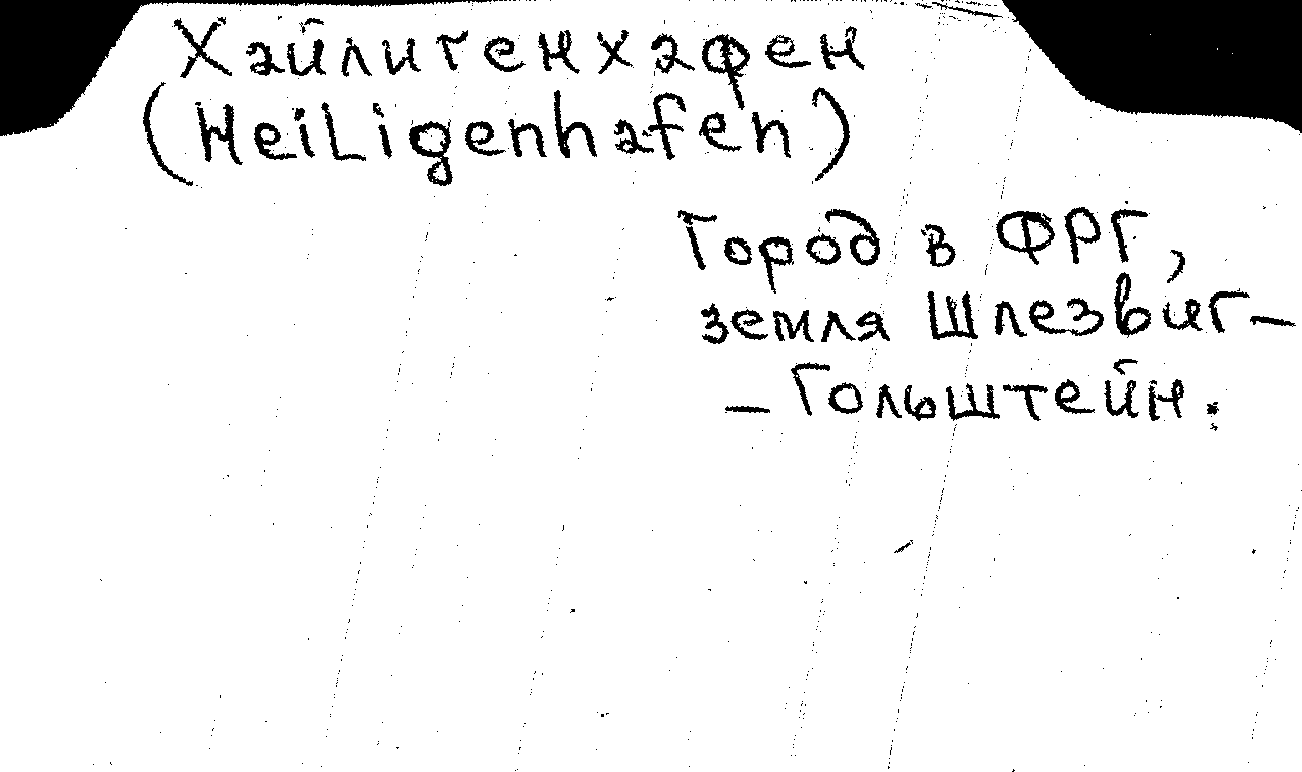 Хайлигенхафен
(Heiligenhafen)
Город в ФРГ,
земля Шлезвиг-
-Гольштейн.